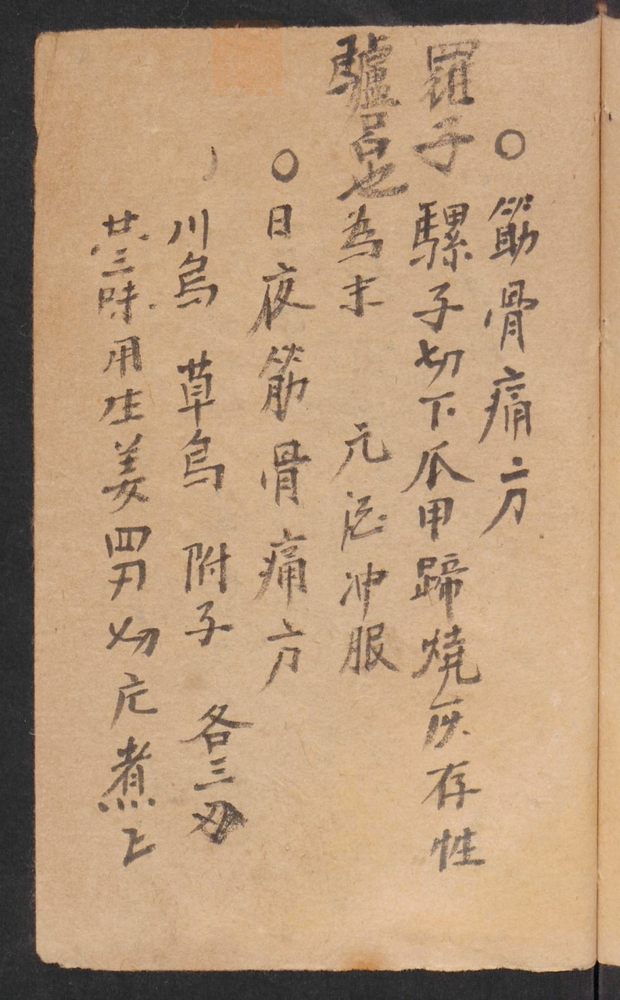 ○筋骨痛方
羅子
騾子切下爪甲蹄燒灰存性
驢
也
為末 元酒冲服
○日夜筋骨痛方
川烏 草烏 附子 各三刄
共三味用生姜四刄切片煮上